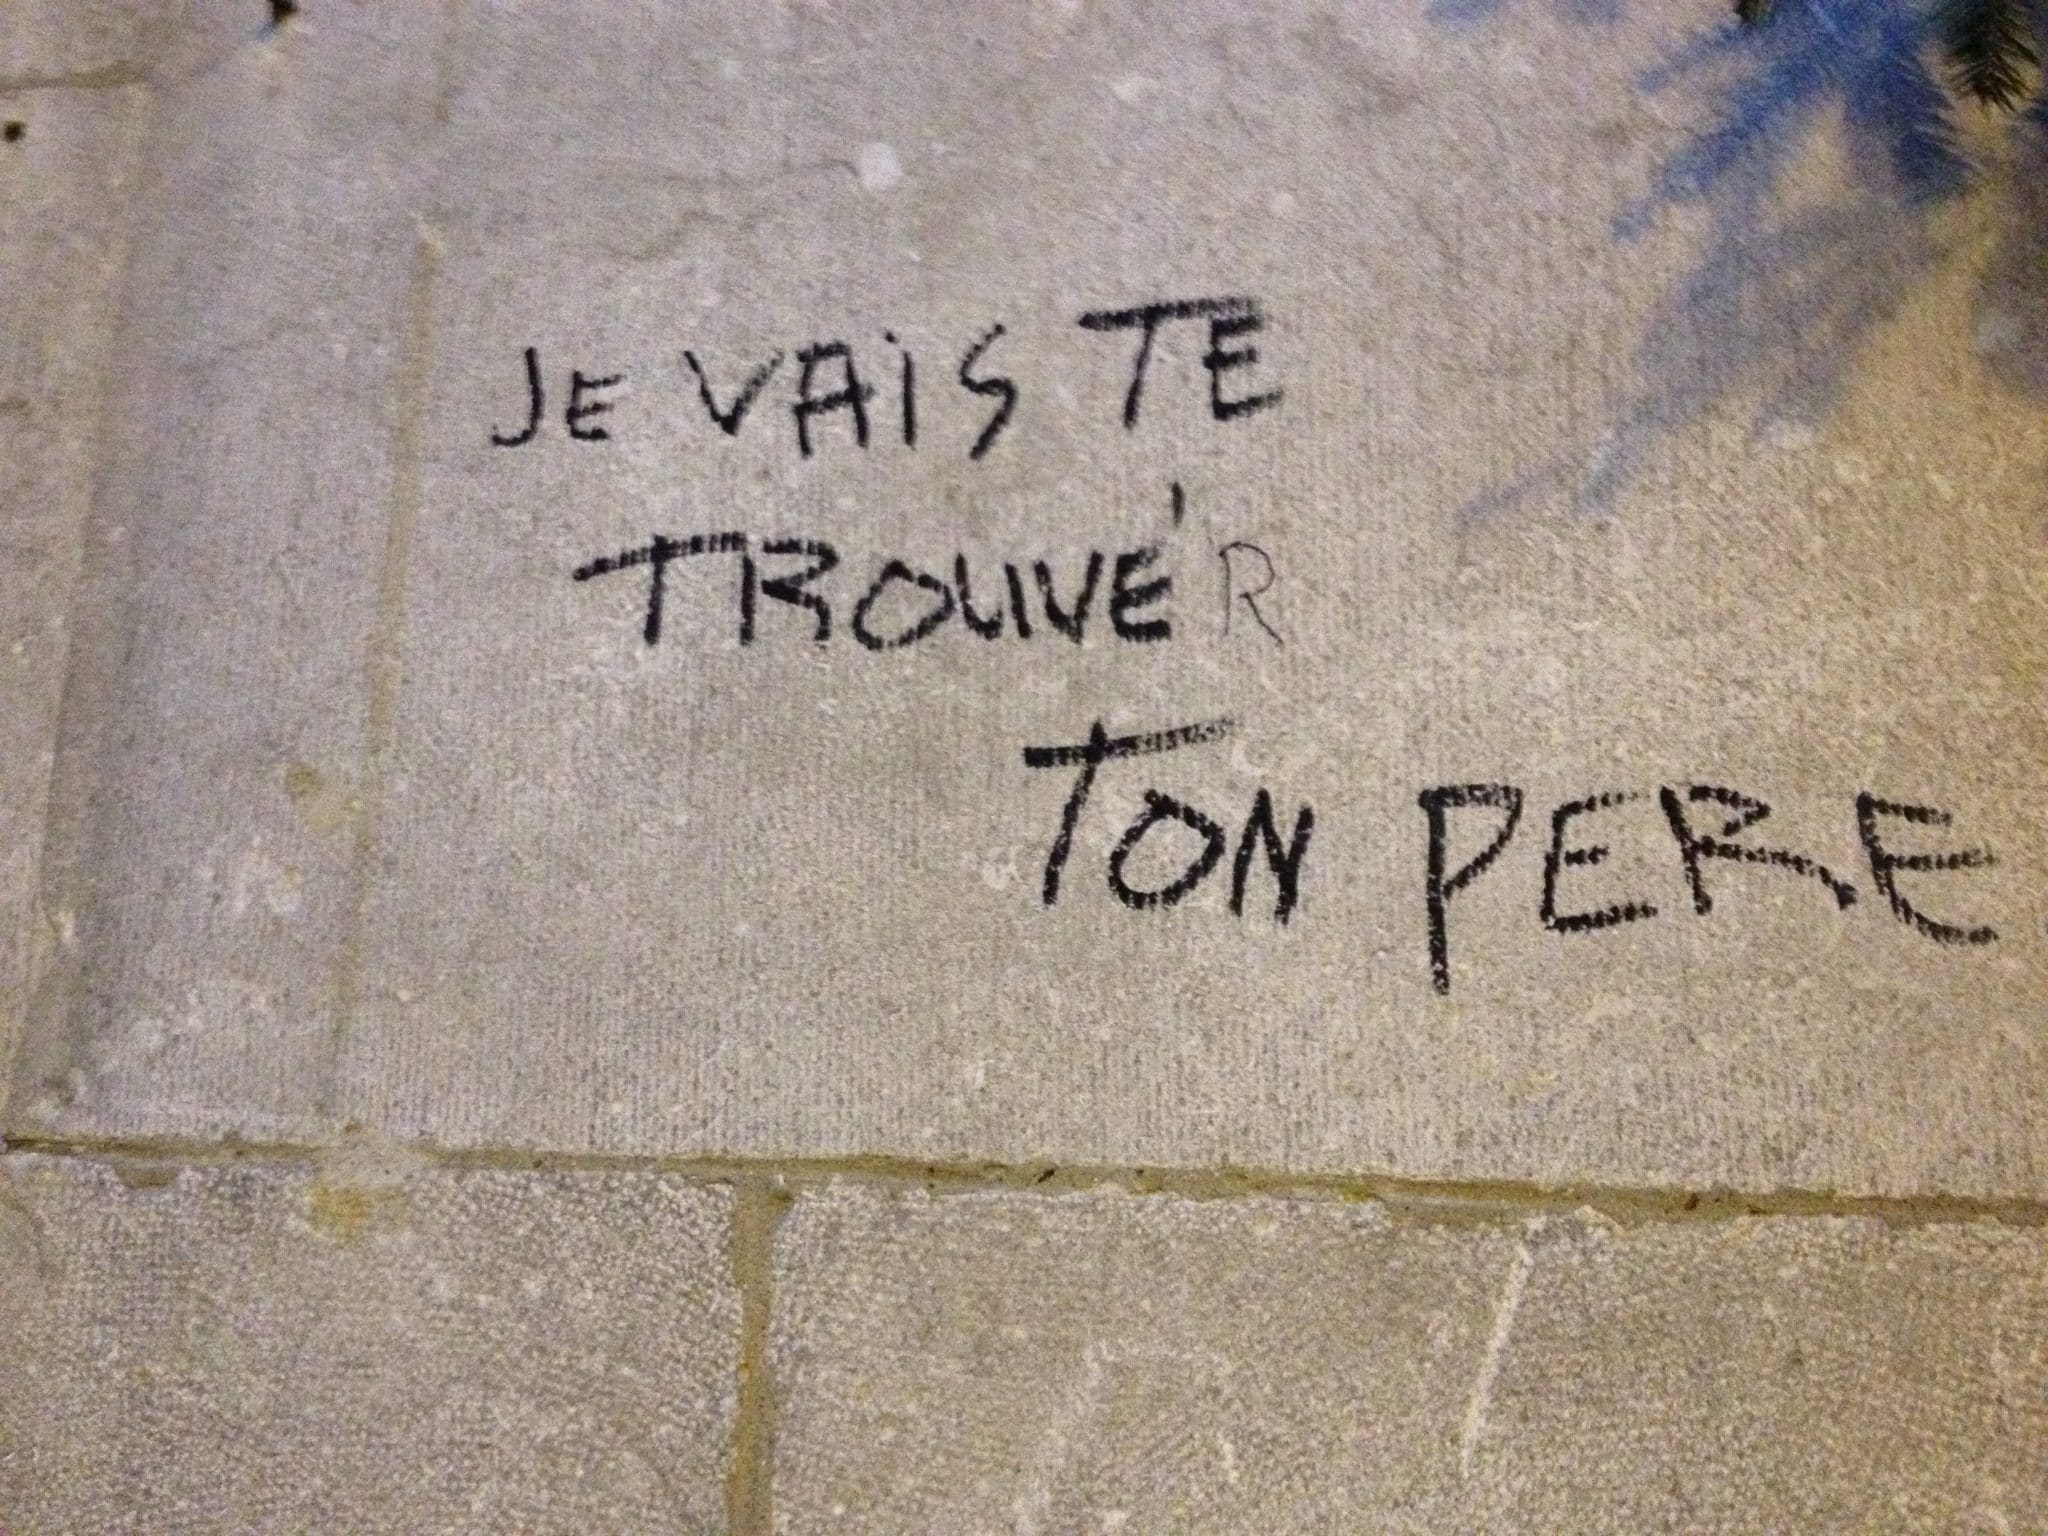 JE VAIS TE
TROUVÉR
TON PERE